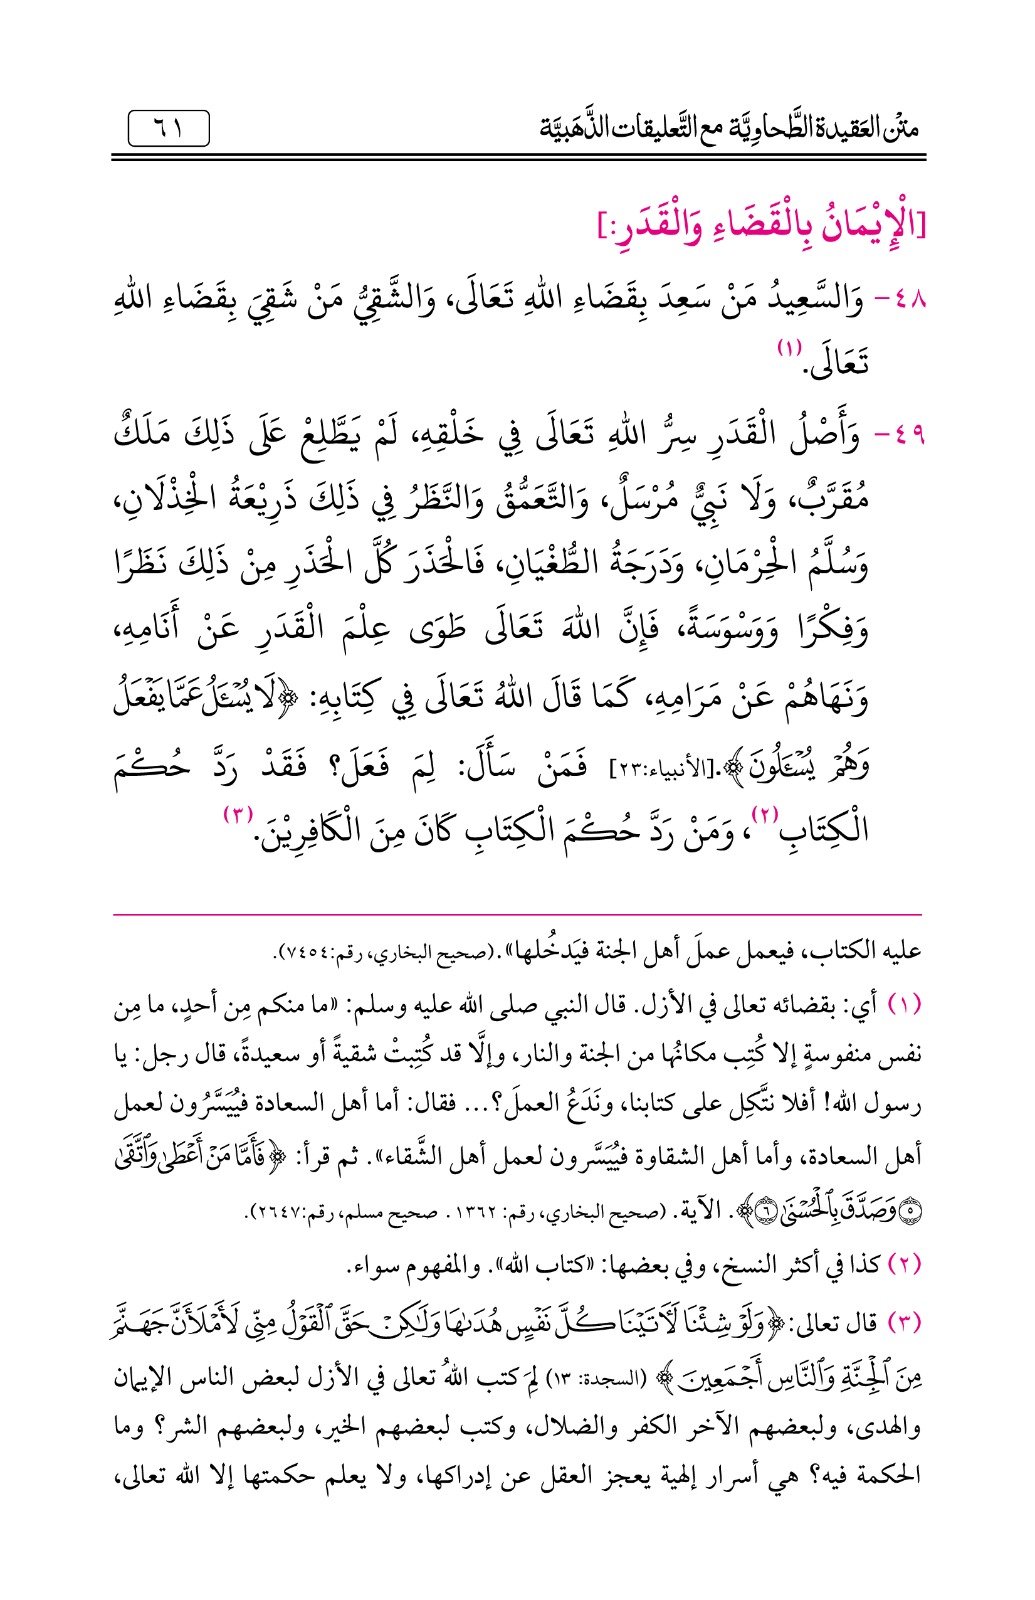 متن العقيدة الطَّحاوِيَّة مع التَّعليقات الذَّهَبيَّة
٦١
[الْإِيْمَانُ بِالْقَضَاءِ وَالْقَدَرِ:]
٤٨- وَالسَّعِيدُ مَنْ سَعِدَ بِقَضَاءِ اللهِ تَعَالَى، وَالشَّقِيُّ مَنْ شَقِيَ بِقَضَاءِ اللهِ
تَعَالَى.(١)
٤٩- وَأَصْلُ الْقَدَرِ سِرُّ اللهِ تَعَالَى فِي خَلْقِهِ، لَمْ يَطَّلِعْ عَلَى ذَلِكَ مَلَكٌ
مُقَرَّبٌ، وَلَا نَبِيٌّ مُرْسَلٌ، وَالتَّعَمُّقُ وَالنَّظَرُ فِي ذَلِكَ ذَرِيْعَةُ الْخِذْلَانِ،
وَسُلَّمُ الْحِرْمَانِ، وَدَرَجَةُ الطُّغْيَانِ، فَالْحَذَرَ كُلَّ الْحَذَرِ مِنْ ذَلِكَ نَظَرًا
وَفِكْرًا وَوَسْوَسَةً، فَإِنَّ اللهَ تَعَالَى طَوَى عِلْمَ الْقَدَرِ عَنْ أَنَامِهِ،
وَنَهَاهُمْ عَنْ مَرَامِهِ، كَمَا قَالَ اللهُ تَعَالَى فِي كِتَابِهِ: ﴿لَا يُسْـَٔلُ عَمَّا يَفْعَلُ
وَهُمْ يُسْـَٔلُونَ﴾.[الأنبياء:٢٣] فَمَنْ سَأَلَ: لِمَ فَعَلَ؟ فَقَدْ رَدَّ حُكْمَ
الْكِتَابِ(٢)، وَمَنْ رَدَّ حُكْمَ الْكِتَابِ كَانَ مِنَ الْكَافِرِيْنَ.(٣)
عليه الكتاب، فيعمل عملَ أهل الجنة فيَدخُلها».(صحيح البخاري، رقم:٧٤٥٤).
(١) أي: بقضائه تعالى في الأزل. قال النبي صلى الله عليه وسلم: «ما منكم مِن أحدٍ، ما مِن
نفس منفوسةٍ إلا كُتِب مكانُها من الجنة والنار، وإلَّا قد كُتِبتْ شقيةً أو سعيدةً، قال رجل: يا
رسول الله! أفلا نتَّكِل على كتابنا، ونَدَعُ العملَ؟... فقال: أما أهل السعادة فيُيَسَّرُون لعمل
أهل السعادة، وأما أهل الشقاوة فيُيَسَّرون لعمل أهل الشَّقاء». ثم قرأ: ﴿فَأَمَّا مَنْ أَعْطَىٰ وَٱتَّقَىٰ
۝٥ وَصَدَّقَ بِٱلْحُسْنَىٰ ۝٦﴾. الآية. (صحيح البخاري، رقم: ١٣٦٢. صحيح مسلم، رقم:٢٦٤٧).
(٢) كذا في أكثر النسخ، وفي بعضها: «كتاب الله». والمفهوم سواء.
(٣) قال تعالى:﴿وَلَوْ شِئْنَا لَأٓتَيْنَا كُلَّ نَفْسٍ هُدَىٰهَا وَلَٰكِنْ حَقَّ ٱلْقَوْلُ مِنِّى لَأَمْلَأَنَّ جَهَنَّمَ
مِنَ ٱلْجِنَّةِ وَٱلنَّاسِ أَجْمَعِينَ﴾ (السجدة: ١٣) لِمَ كتب اللهُ تعالى في الأزل لبعض الناس الإيمان
والهدى، ولبعضهم الآخر الكفر والضلال، وكتب لبعضهم الخير، ولبعضهم الشر؟ وما
الحكمة فيه؟ هي أسرار إلهية يعجز العقل عن إدراكها، ولا يعلم حكمتها إلا الله تعالى،